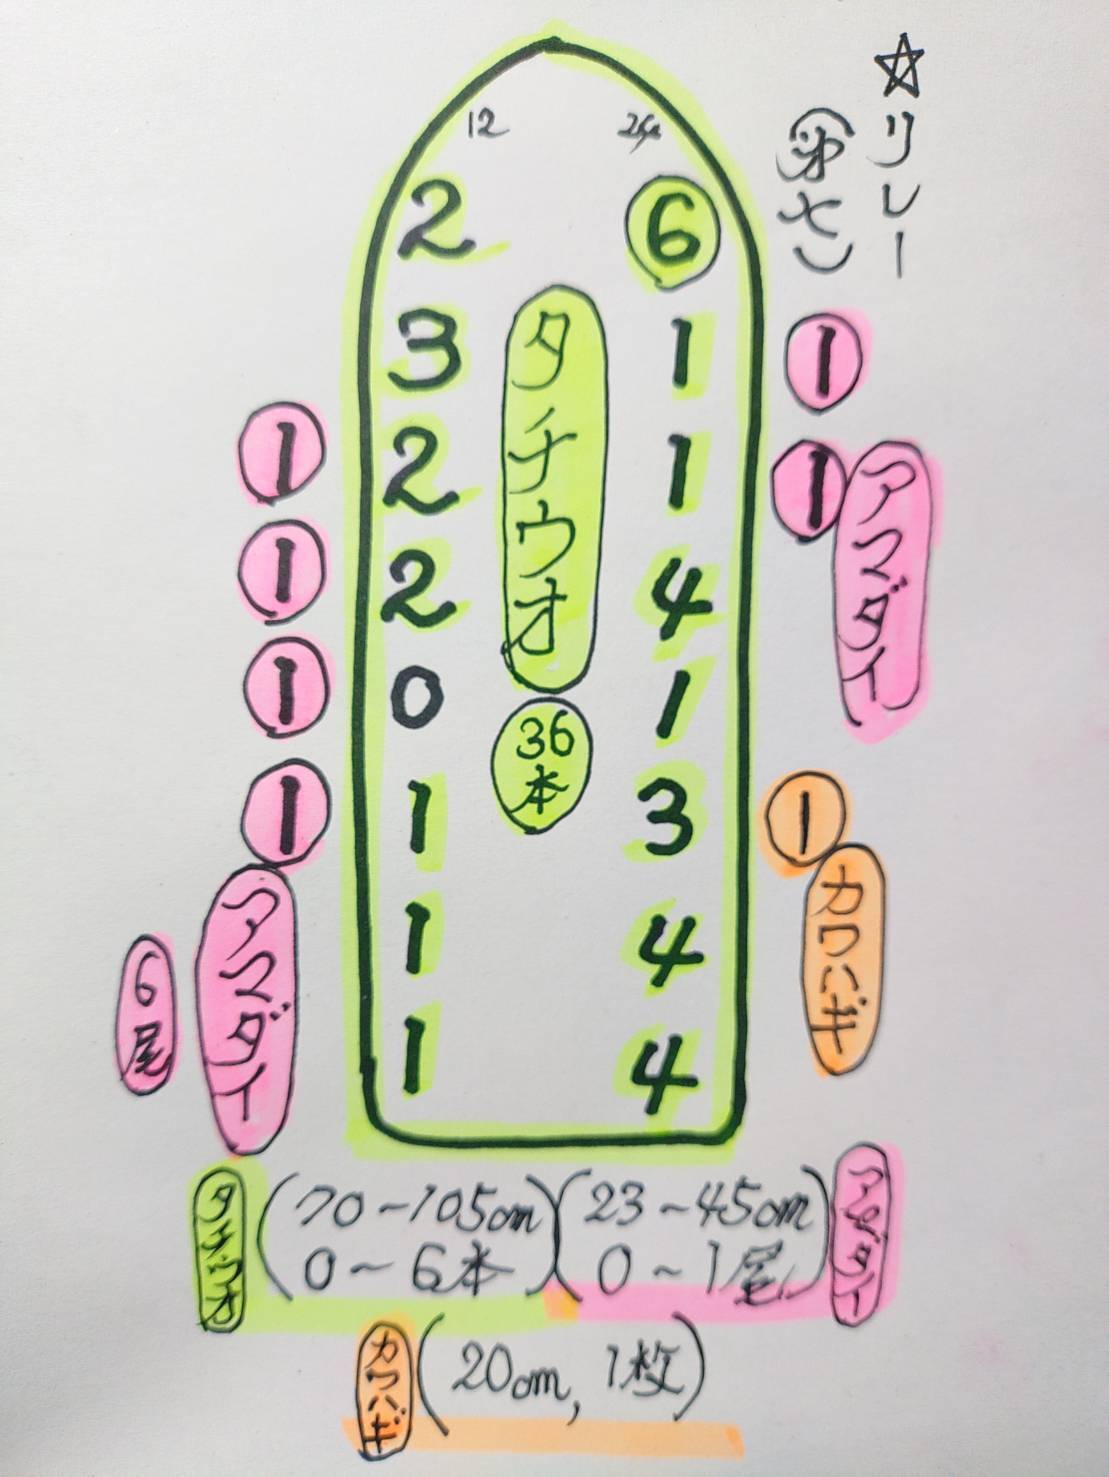 ☆リレー
(第七)
12
24
2
6
3
1
2
1
2
4
0
1
1
3
1
4
1
4
タチウオ
36
本
1
1
アマダイ
1
1
1
1
アマダイ
6尾
1
カワハギ
タチウオ
(70～105cm
0～6本)
(23～45cm
0～1尾)
アマダイ
カワハギ
(20cm, 1枚)